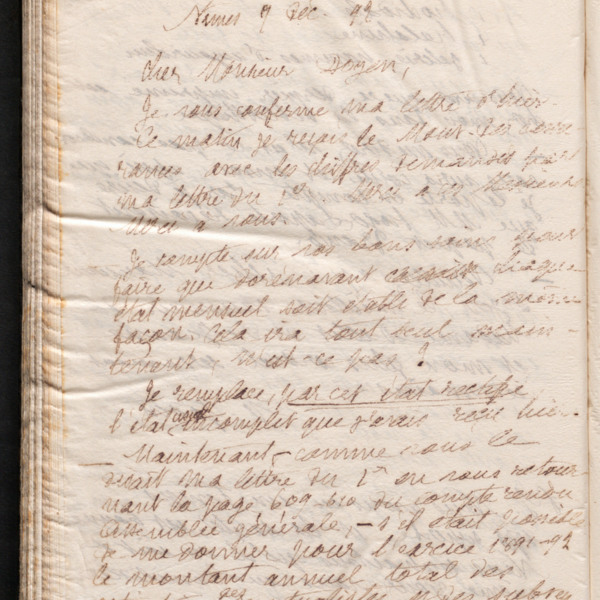 Nimes 7 Dec. 92
cher Monsieur Doyen,
Je vous confirme ma lettre d'hier.
Ce matin je reçois le Mouvt des
avec les chiffres demandés par
ma lettre du 1er. Merci a ces Messieurs
Merci a vous.
Je compte sur vos bons soins pour
faire que dorénavant chaque
état mensuel soit établi de la même
façon. Cela ira tout seul main-
tenant, n'est-ce pas ?
Je remplace, par cet état rectifié
l'état incomplet que j'avais reçu hier.
— Maintenant, comme vous le
disait ma lettre du 1er en vous retour
nant la page 609-610 du compte rendu
assemblée générale, - s'il était possible
de me donner pour l'exercice 1891-92
le montant annuel total des